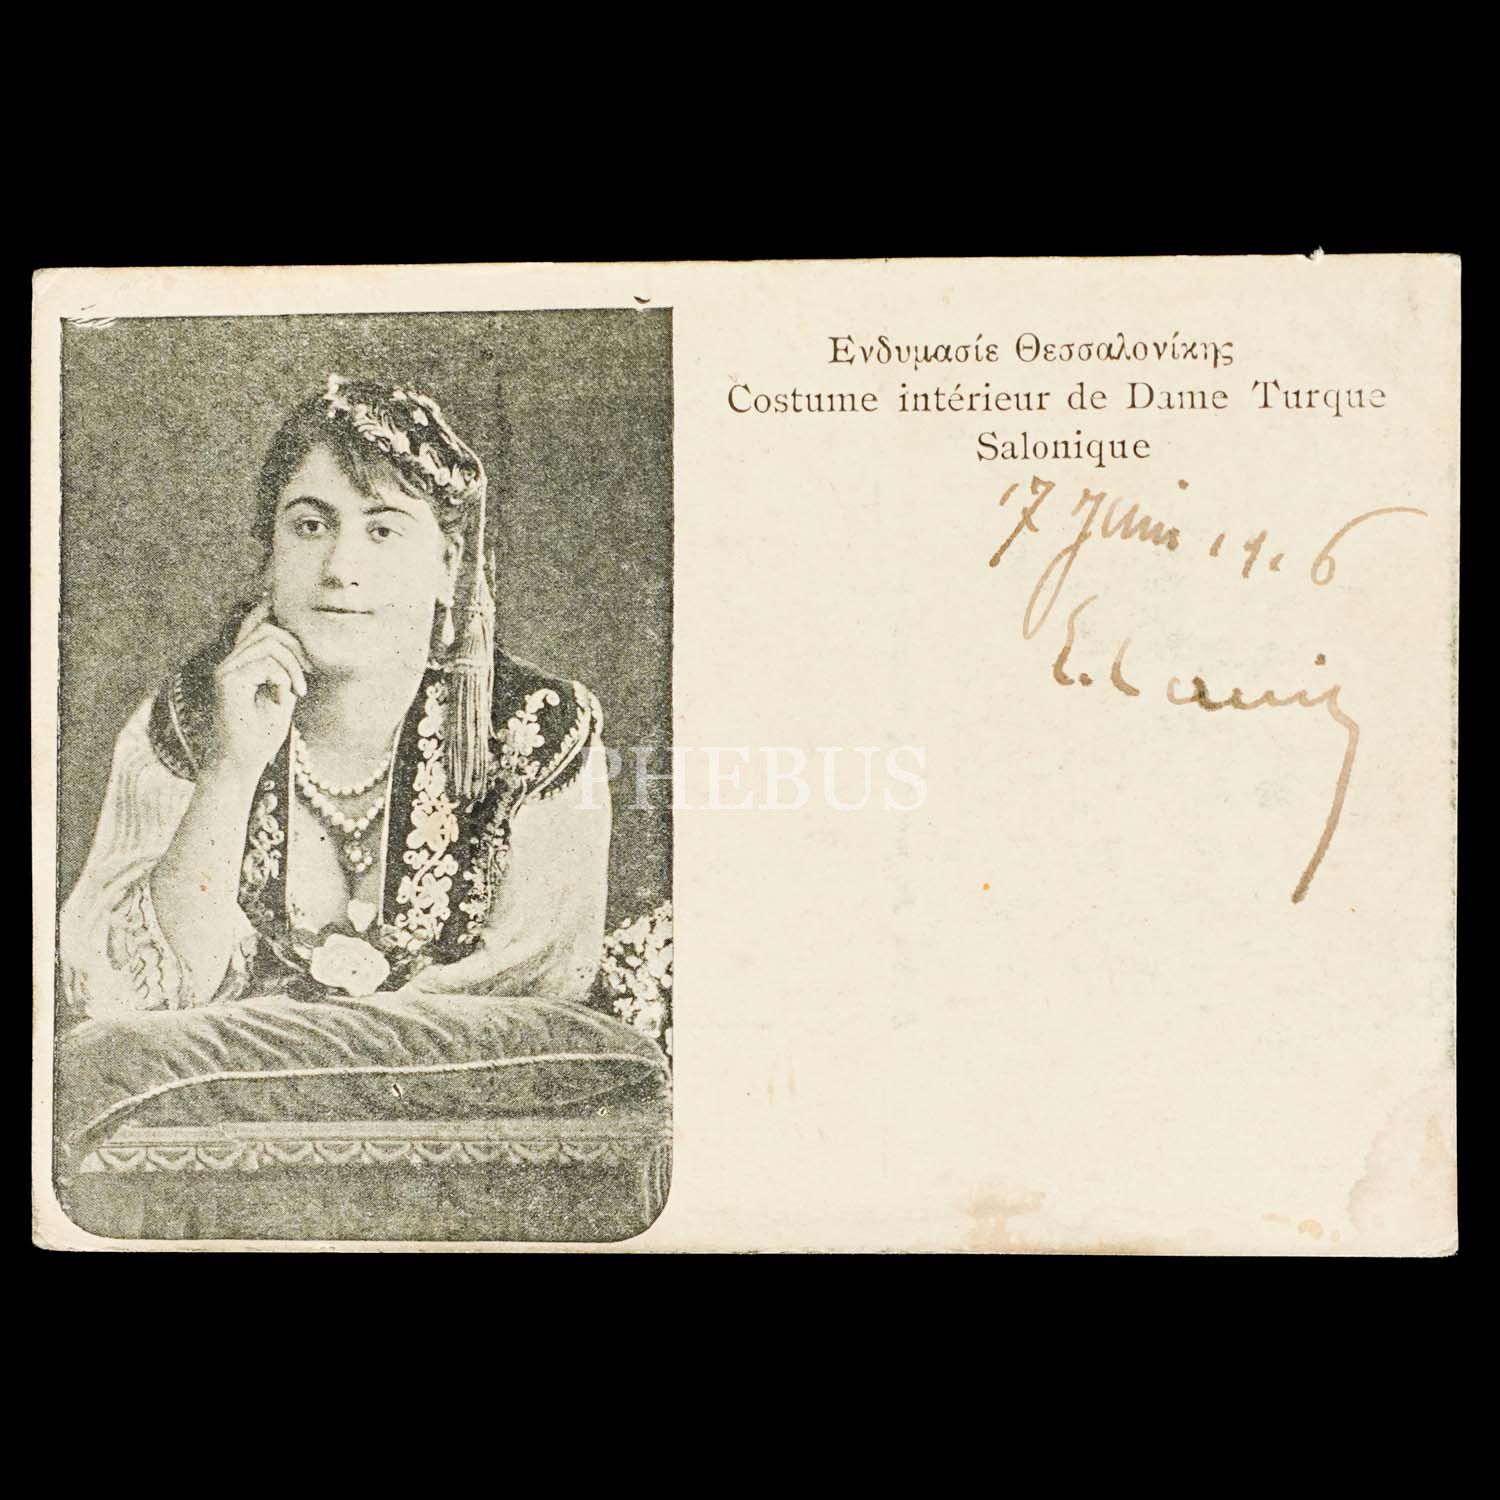 Ενδυμασίε Θεσσαλονίκης
Costume intérieur de Dame Turque
Salonique
17 Juin 1916
PHEBUS